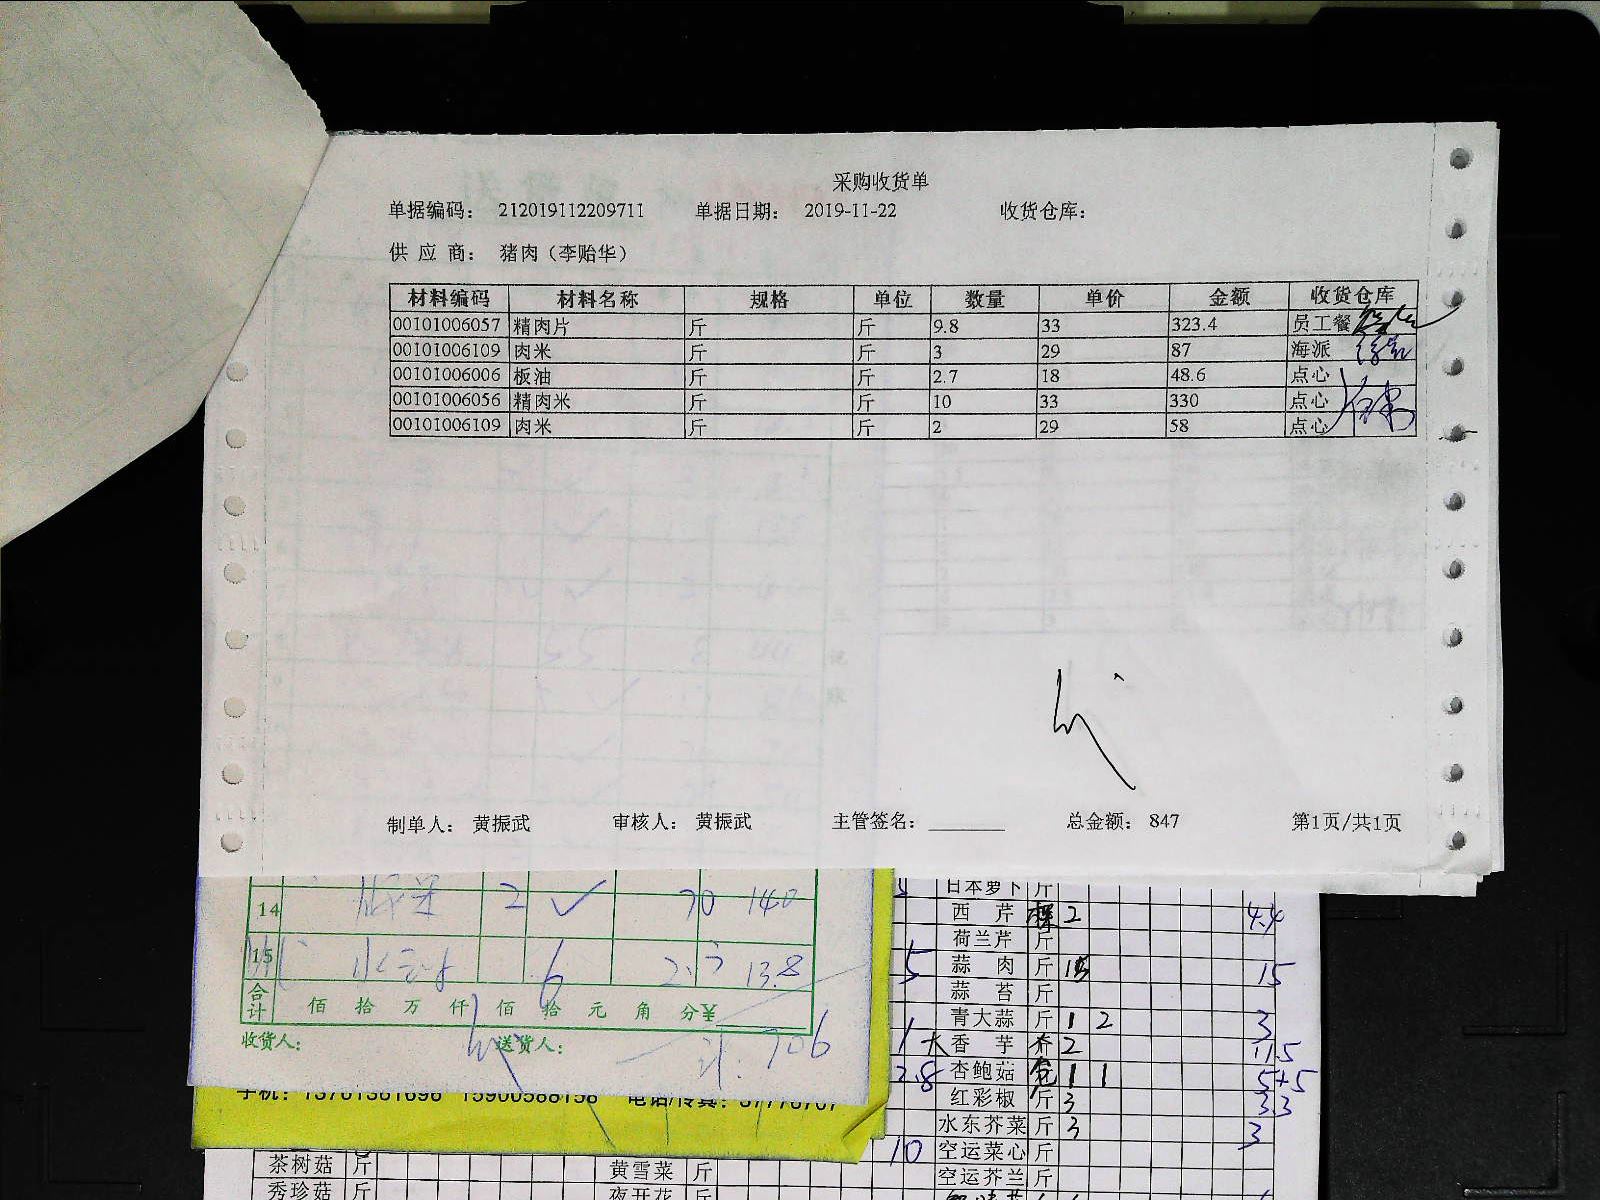 采购收货单
单据编码： 212019112209711 单据日期： 2019-11-22 收货仓库：
供 应 商： 猪肉（李贻华）
材料编码 材料名称 规格 单位 数量 单价 金额 收货仓库
00101006057 精肉片 斤 斤 9.8 33 323.4 员工餐
00101006109 肉米 斤 斤 3 29 87 海派
00101006006 板油 斤 斤 2.7 18 48.6 点心
00101006056 精肉米 斤 斤 10 33 330 点心
00101006109 肉米 斤 斤 2 29 58 点心
制单人： 黄振武 审核人： 黄振武 主管签名： 总金额： 847 第1页/共1页
14 2 ✓ 70 140
15 6 2.3 13.8
合计 佰 拾 万 仟 佰 拾 元 角 分¥
收货人： 送货人： 706
手机：13701381696 15900588158 电话/传真：
日本萝卜 斤
西 芹 2 4.4
荷兰芹 斤
5 蒜 肉 斤 15 15
蒜 苔 斤
青大蒜 斤 1 2 3
1 大香 芋 2 11.5
2.8 杏鲍菇 1 1 5+5
红彩椒 斤 3 3.3
水东芥菜 斤 3 3
10 空运菜心 斤
空运芥兰 斤
茶树菇 斤 黄雪菜 斤
秀珍菇 斤 夜开花 斤